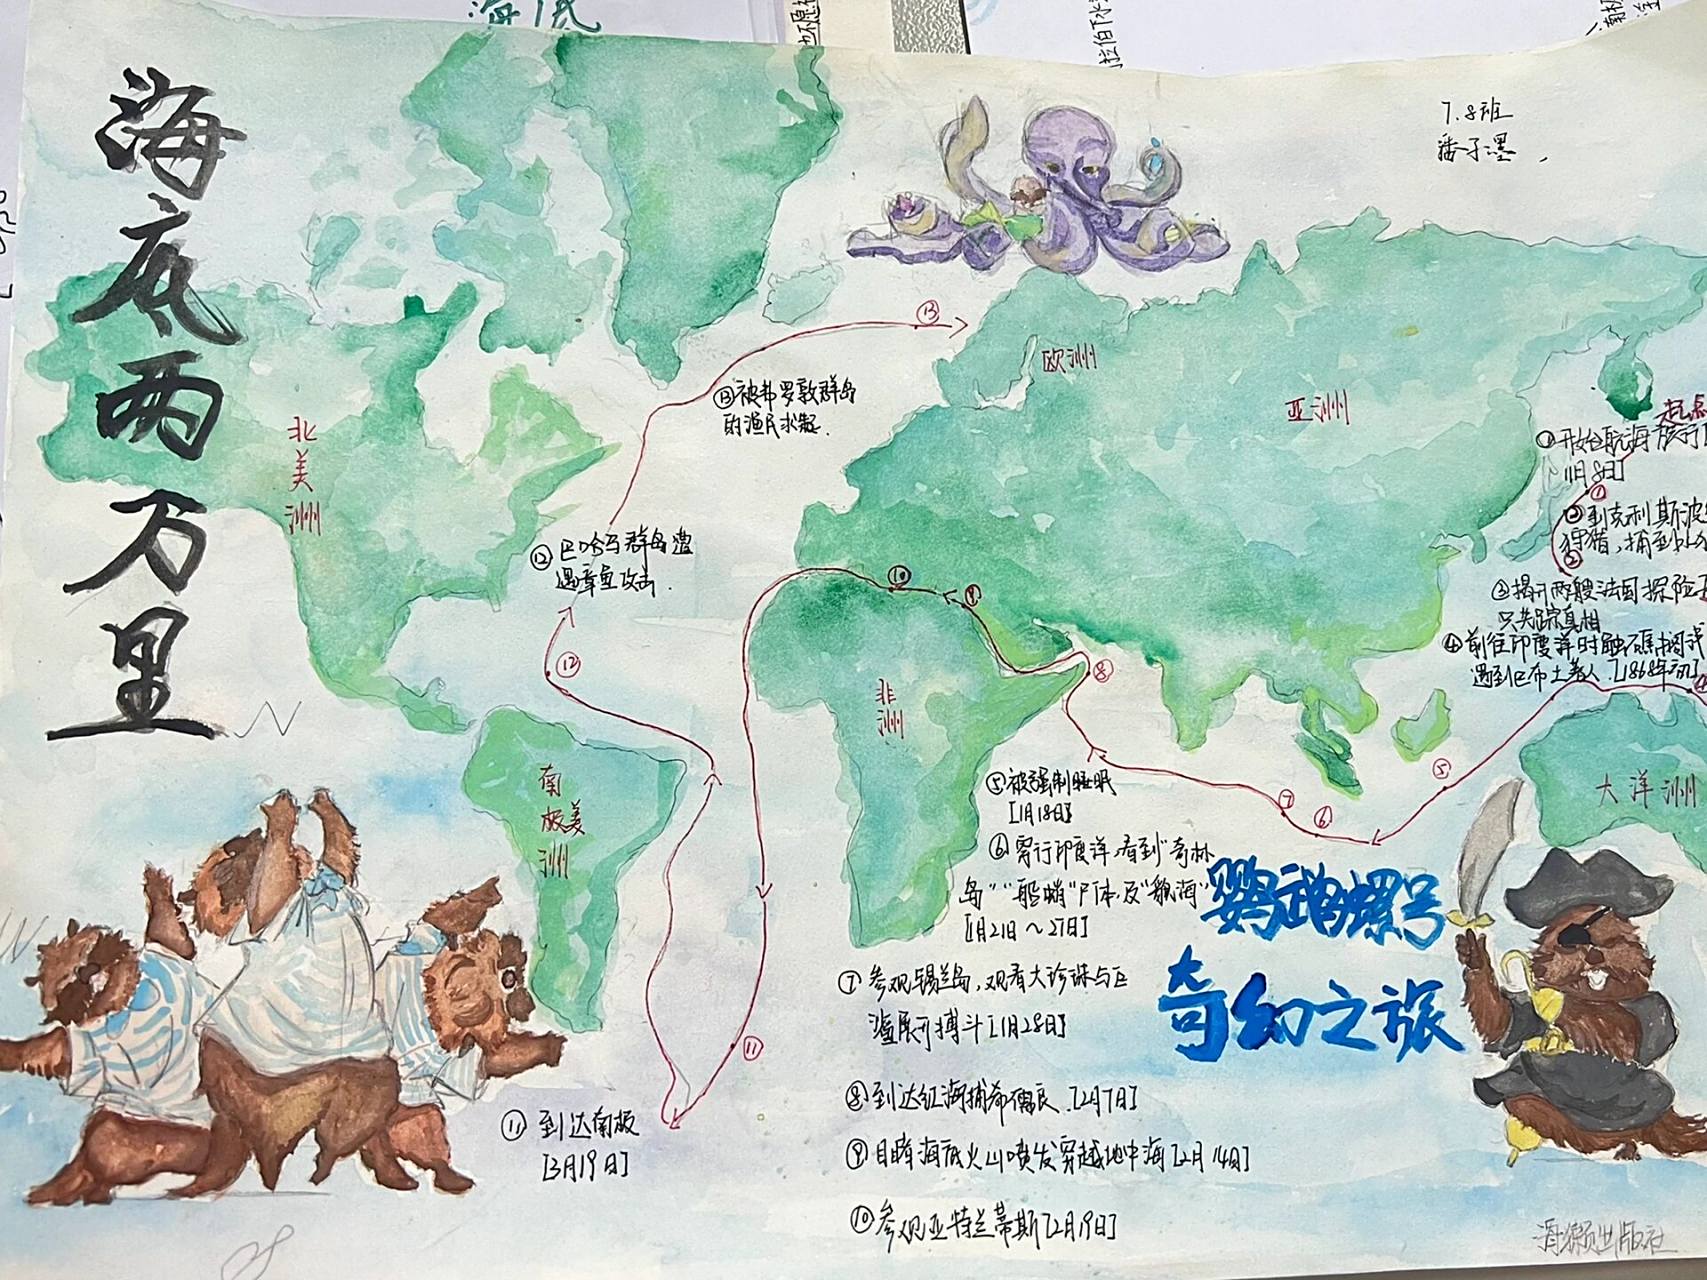 海底
海底两万里
7.8班
潘子墨
北
美
洲
欧洲
亚洲
非
洲
南
极美
洲
大洋洲
起点
①开始航海旅行
11月8日]
②到克利斯波
狩猎，捕到
③揭开两艘法国探险
只失踪真相
④前往印度洋时触礁搁浅
遇到巴布土著人.[1868年初]
⑤被强制睡眠
[1月18日]
⑥穿行印度洋，看到"奇林
岛""船蛸"尸体，及"航海"
[1月21日～27日]
⑦参观锡兰岛，观看大珍珠与巨
鲨展开搏斗[1月28日]
⑧到达红海捕希儒艮.[2月7日]
⑨目睹海底火山喷发穿越地中海[2月14日]
⑩参观亚特兰蒂斯[2月19日]
⑪到达南极
[3月19日]
⑫巴哈马群岛遭
遇章鱼攻击.
⑬被弗罗敦群岛
的渔民求起.
⑬
⑫
⑪
⑩
⑨
⑧
⑦
⑥
⑤
④
②
①
鹦鹉螺号
奇幻之旅
滑獭出版社